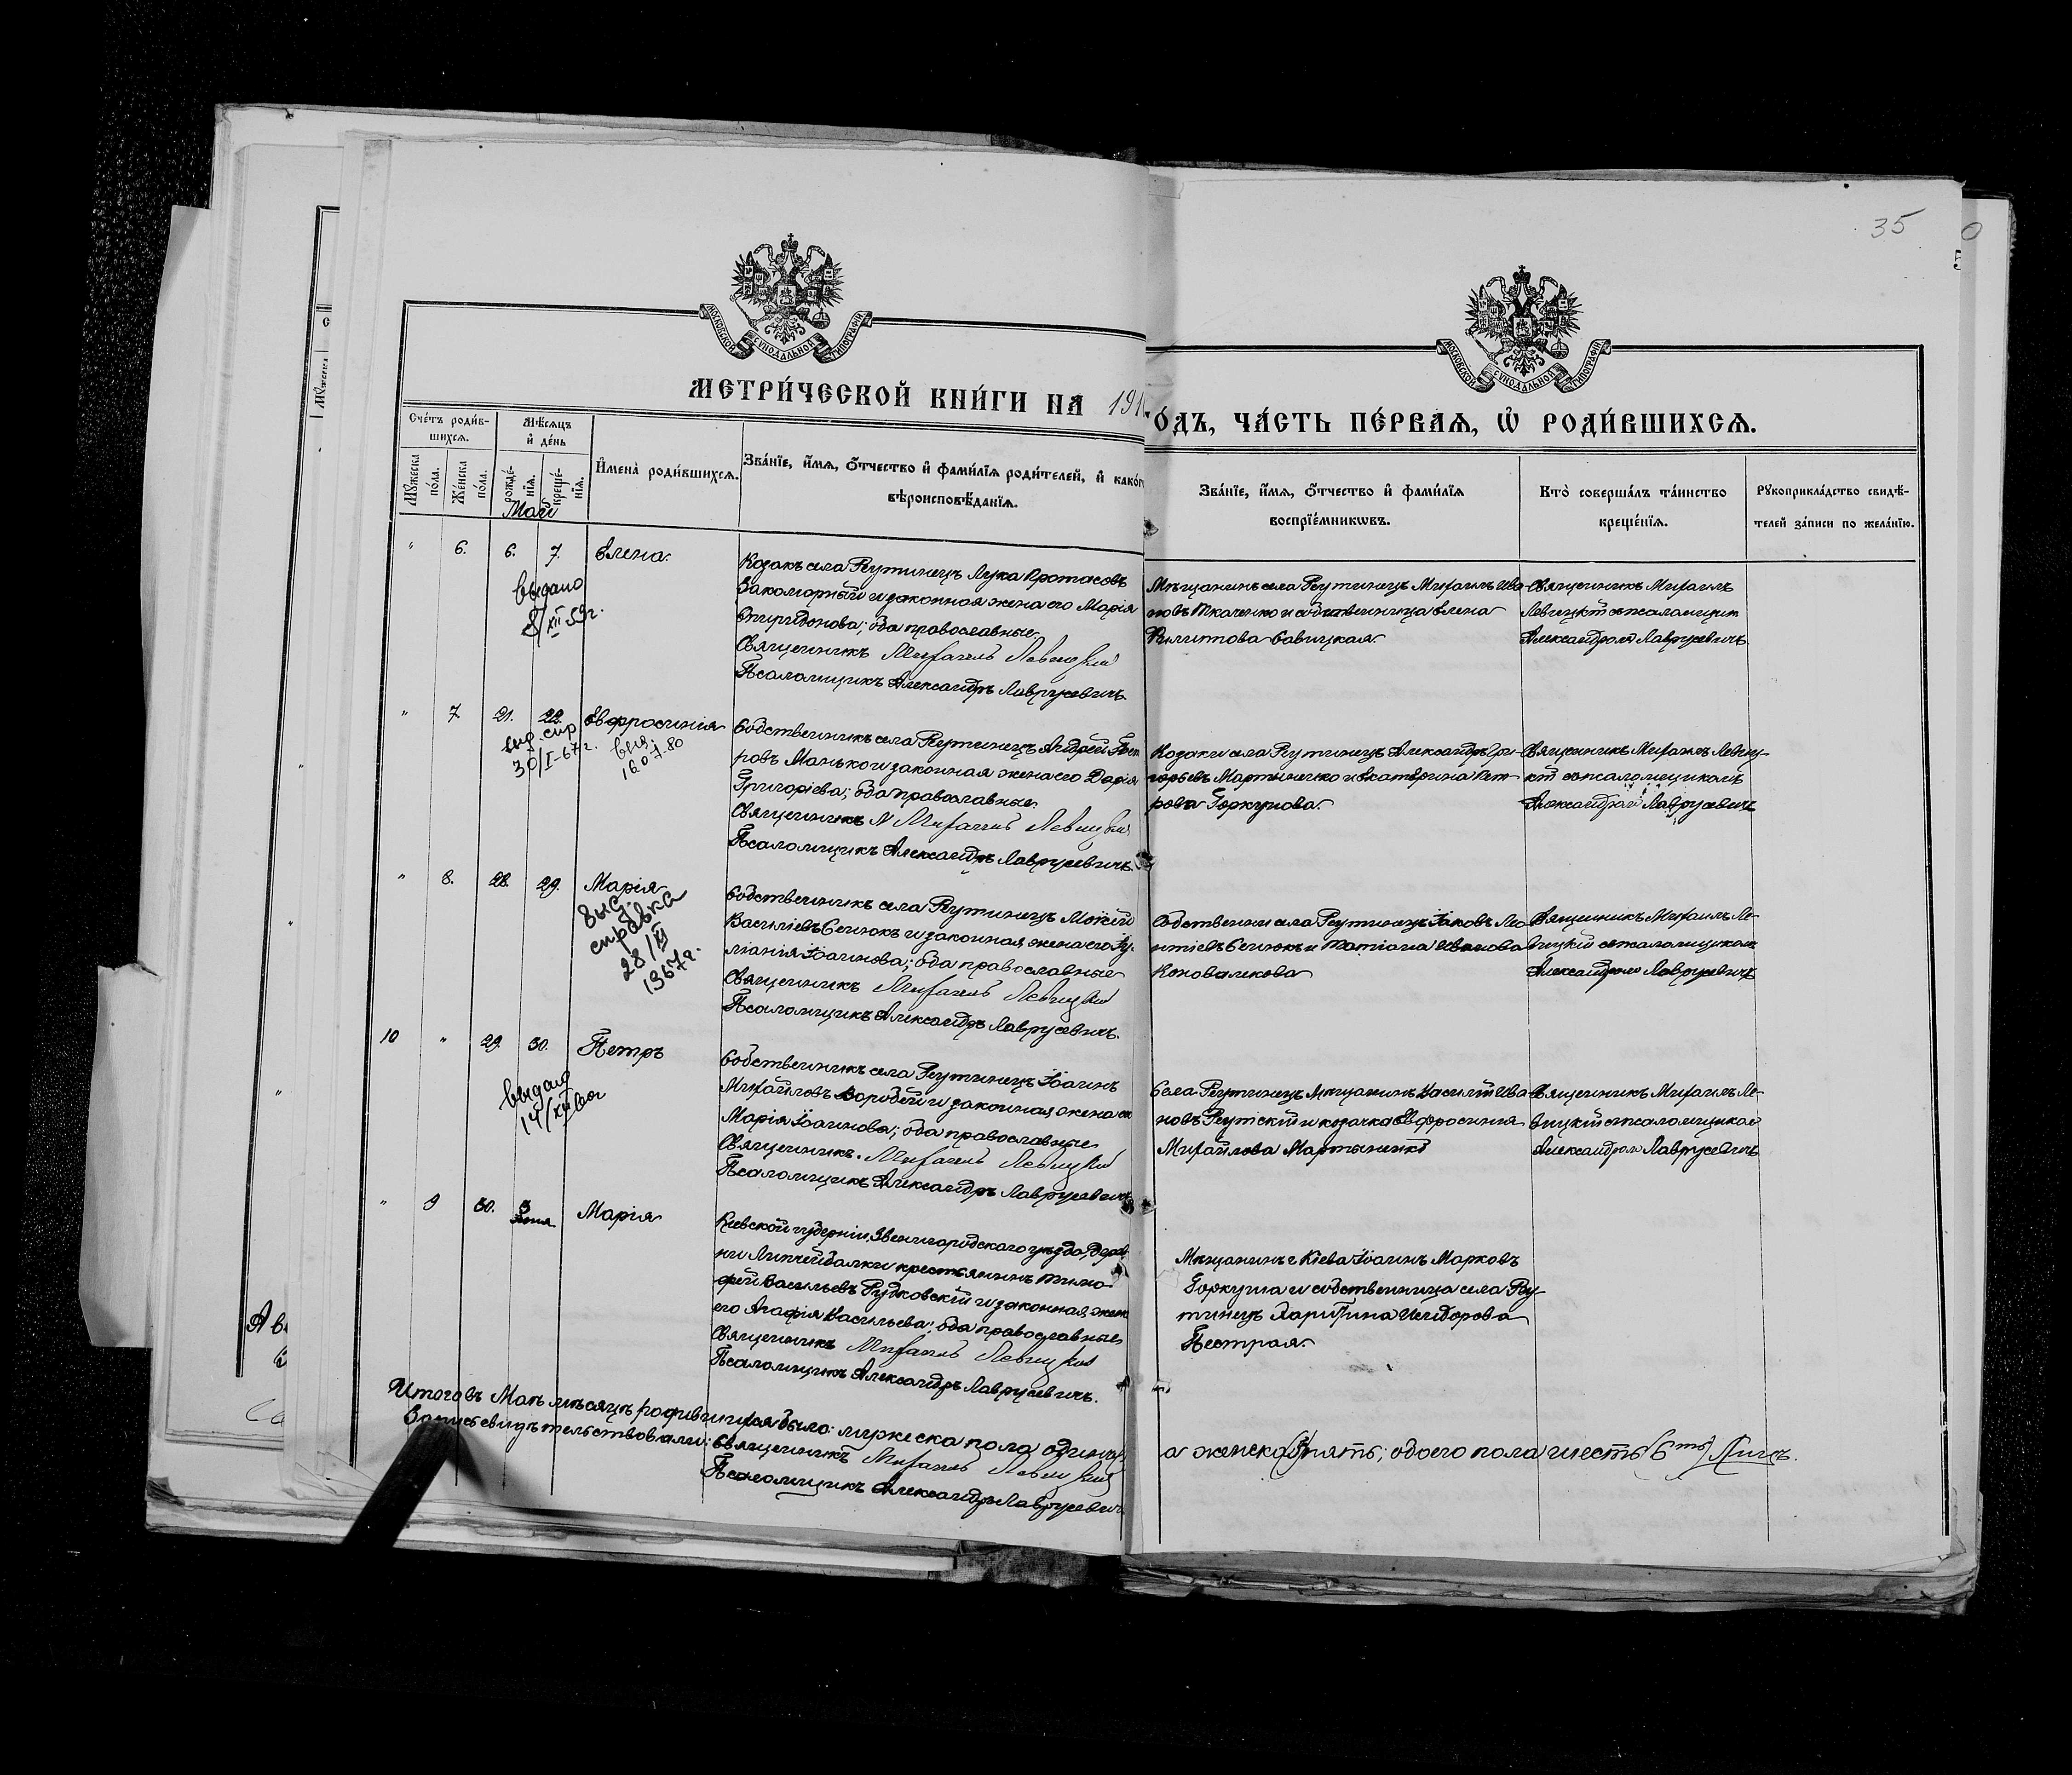 35
МОСКОВСКОЙ СѴНОДАЛЬНОЙ ТИПОГРАФІИ
МОСКОВСКОЙ СѴНОДАЛЬНОЙ ТИПОГРАФІИ
МЕТРИ́ЧЕСКОЙ КНИ́ГИ НА 191
О́ДЪ, ЧА́СТЬ ПЕ́РВАѦ, Ѽ РОДИ́ВШИХСѦ.
Сче́тъ роди́в-
шихсѧ.
Мꙋ́жеска по́ла.
Же́нска по́ла.
Мѣ́сѧцъ
и҆ де́нь
рожде́-
нїѧ.
креще́-
нїѧ.
И҆мена̀ роди́вшихсѧ.
Зва́нїе, и҆́мѧ, ѻ҆́тчество и҆ фами́лїѧ роди́телей, и҆ како́гѡ
вѣроисповѣ́данїѧ.
Зва́нїе, и҆́мѧ, ѻ҆́тчество и҆ фами́лїѧ
воспрїе́мникѡвъ.
Кто̀ соверша́лъ та́инство
креще́нїѧ.
Рꙋкоприкла́дство свидѣ́-
телей за́писи по жела́нїю.
Май
" 6. 6. 7. Елена.
выдано
8/XII 59г.
Козакъ села Реутинецъ Лука Протасовъ
Закоморный и законная жена его Марія
Спиридонова; оба православные.
Священникъ Михаилъ Левицкій
Псаломщикъ Александръ Лаврусевичъ.
Мѣщанинъ села Реутинецъ Михаилъ Ива-
новъ Ткаченко и собственница Елена
Филиппова Савицкая.
Священникъ Михаилъ
Левицкій съ псаломщик
Александромъ Лаврусевичъ
" 7. 21. 22. Евфросинія
выд. спр
30/I-67г.
выд.
16.07.80
Собственникъ села Реутинецъ Андрей Пет
ровъ Манько и законная жена его Дарія
Григоріева; оба православные
Священникъ Михаилъ Левицкій
Псаломщикъ Александръ Лаврусевичъ.
Козаки села Реутинецъ Александръ Гри-
горьевъ Мартыненко и Екатерина Пет-
рова Горкунова.
Священникъ Михаилъ Левиц-
кій съ псаломщикомъ
Александромъ Лаврусевичъ
" 8. 28. 29. Марія
выд.
справка
28/III
1967г.
Собственникъ села Реутинецъ Моисей
Василіевъ Сенюкъ и законная жена его Іу-
ліанія Іоаннова; оба православные
Священникъ Михаилъ Левицкій
Псаломщикъ Александръ Лаврусевичъ.
Собственники села Реутинецъ Іаковъ Лео
нтіевъ Сенюкъ и Татіана Иванова
Коновалекова
Священникъ Михаилъ Ле-
вицкій съ псаломщикомъ
Александромъ Лаврусевичъ
10 " 29. 30. Петръ
выдано
14/XII
Собственникъ села Реутинецъ Іоаннъ
Михайловъ Воробей и законная жена его
Марія Іоаннова; оба православные
Священникъ. Михаилъ Левицкій
Псаломщикъ Александръ Лаврусевичъ
Села Реутинецъ Мѣщанинъ Василій Ива-
новъ Реутскій и козачка Евфросинія
Михайлова Мартыненко
Священникъ Михаилъ Ле-
вицкій съ псаломщикомъ
Александромъ Лаврусевичъ
" 9 30. 3 Іюня Марія
Кіевской губерніи, Звенигородского уѣзда, дерев
ни Липчейбалки крестьянинъ Тимо
фей Васильевъ Рудковскій и законная жена
его Агафія Васильева; оба православные
Священникъ Михаилъ Левицкій
Псаломщикъ Александръ Лаврусевичъ.
Мѣщанинъ г. Кіева Іоаннъ Марковъ
Горкуша и собственница села Реу-
тинецъ Харитина Исидорова
Пестрая.
Итого въ Маѣ мѣсяцѣ родившихся было: мужеска пола одинъ
а женска (5) пять; обоего пола шесть (6ть) лицъ.
Запись свидѣтельствовали: Священникъ Михаилъ Левицкій
Псаломщикъ Александръ Лаврусевичъ